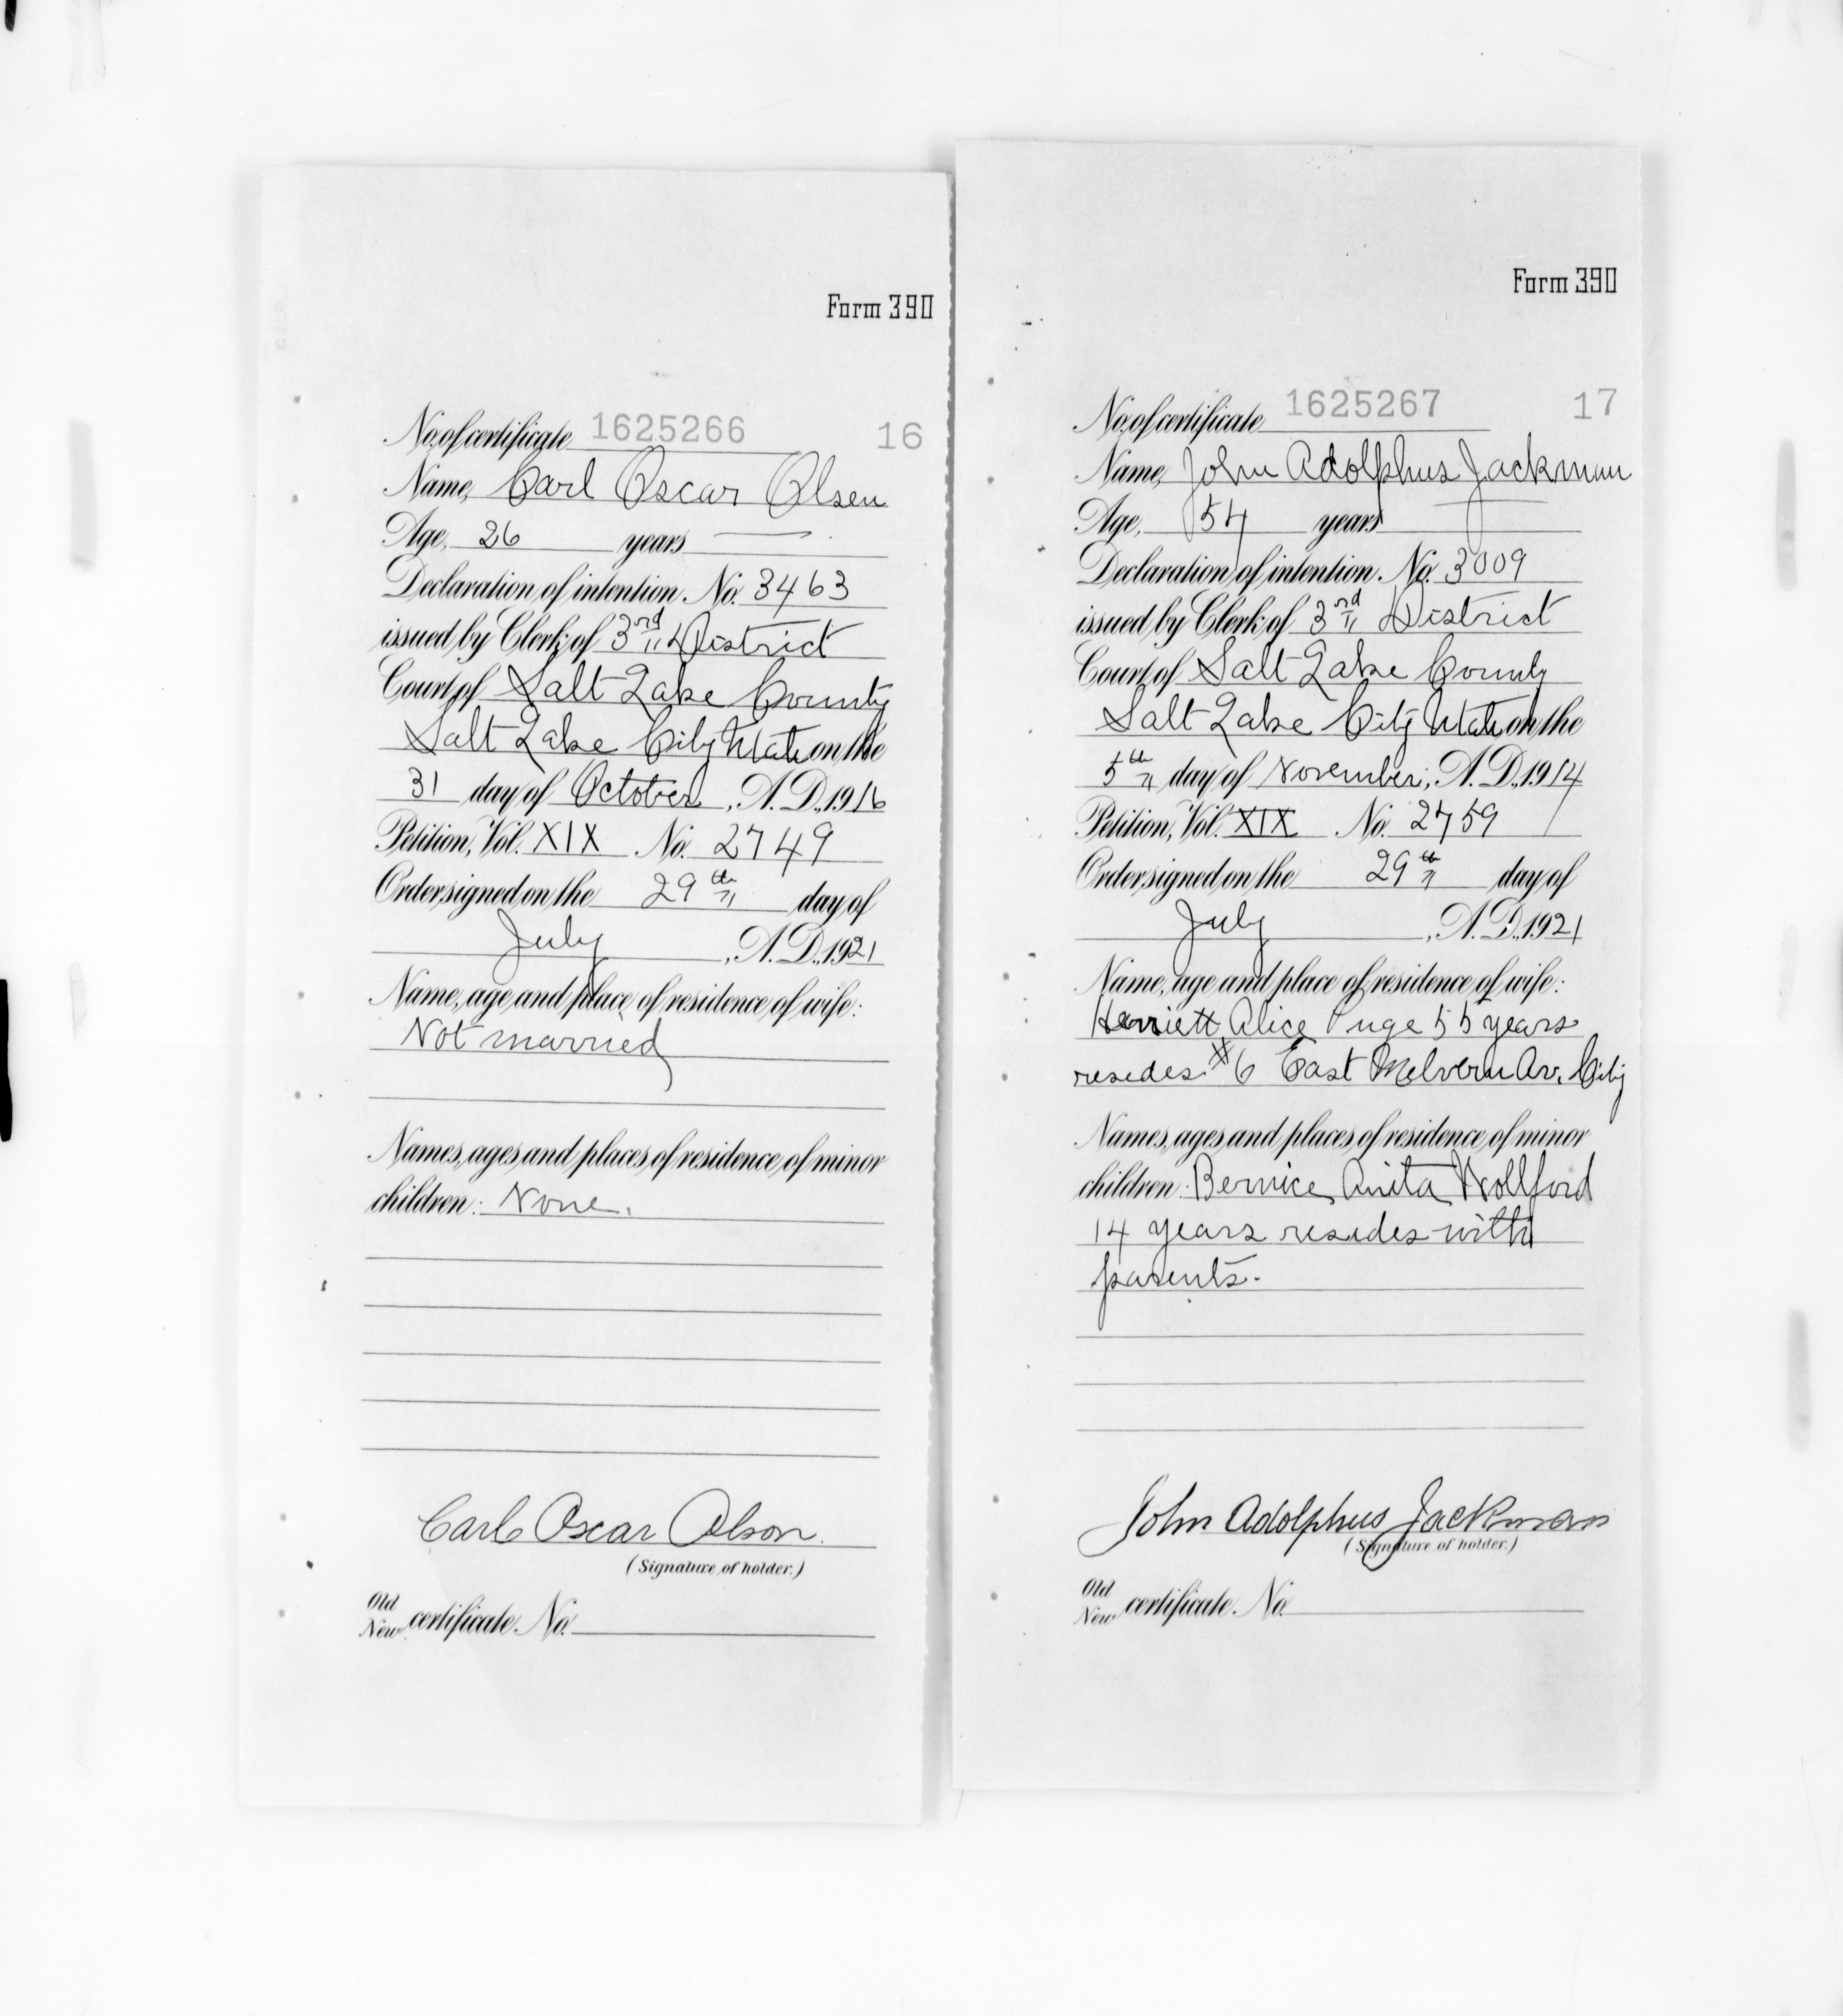 Form 390
No. of certificate 1625266 16
Name, Carl Oscar Olsen
Age, 26 years
Declaration of intention No. 3463
issued by Clerk of 3rd District
Court of Salt Lake County
Salt Lake City Utah on the
31 day of October, A.D. 1916
Petition, Vol. XIX No. 2749
Order signed on the 29th day of
July, A.D. 1921
Name, age and place of residence of wife:
Not married
Names, ages and places of residence of minor
children: None.
Carl Oscar Olson.
(Signature of holder.)
Old
New certificate No.
Form 390
No. of certificate 1625267 17
Name, John Adolphus Jackman
Age, 54 years
Declaration of intention No. 3009
issued by Clerk of 3rd District
Court of Salt Lake County
Salt Lake City Utah on the
5th day of November, A.D. 1914
Petition, Vol. XIX No. 2759
Order signed on the 29th day of
July, A.D. 1921
Name, age and place of residence of wife:
Harriett Alice 55 years
resides #6 East Melvern Av. City
Names, ages and places of residence of minor
children: Bernice Anita Wollford
14 years resides with
parents.
John Adolphus Jackman
(Signature of holder.)
Old
New certificate No.